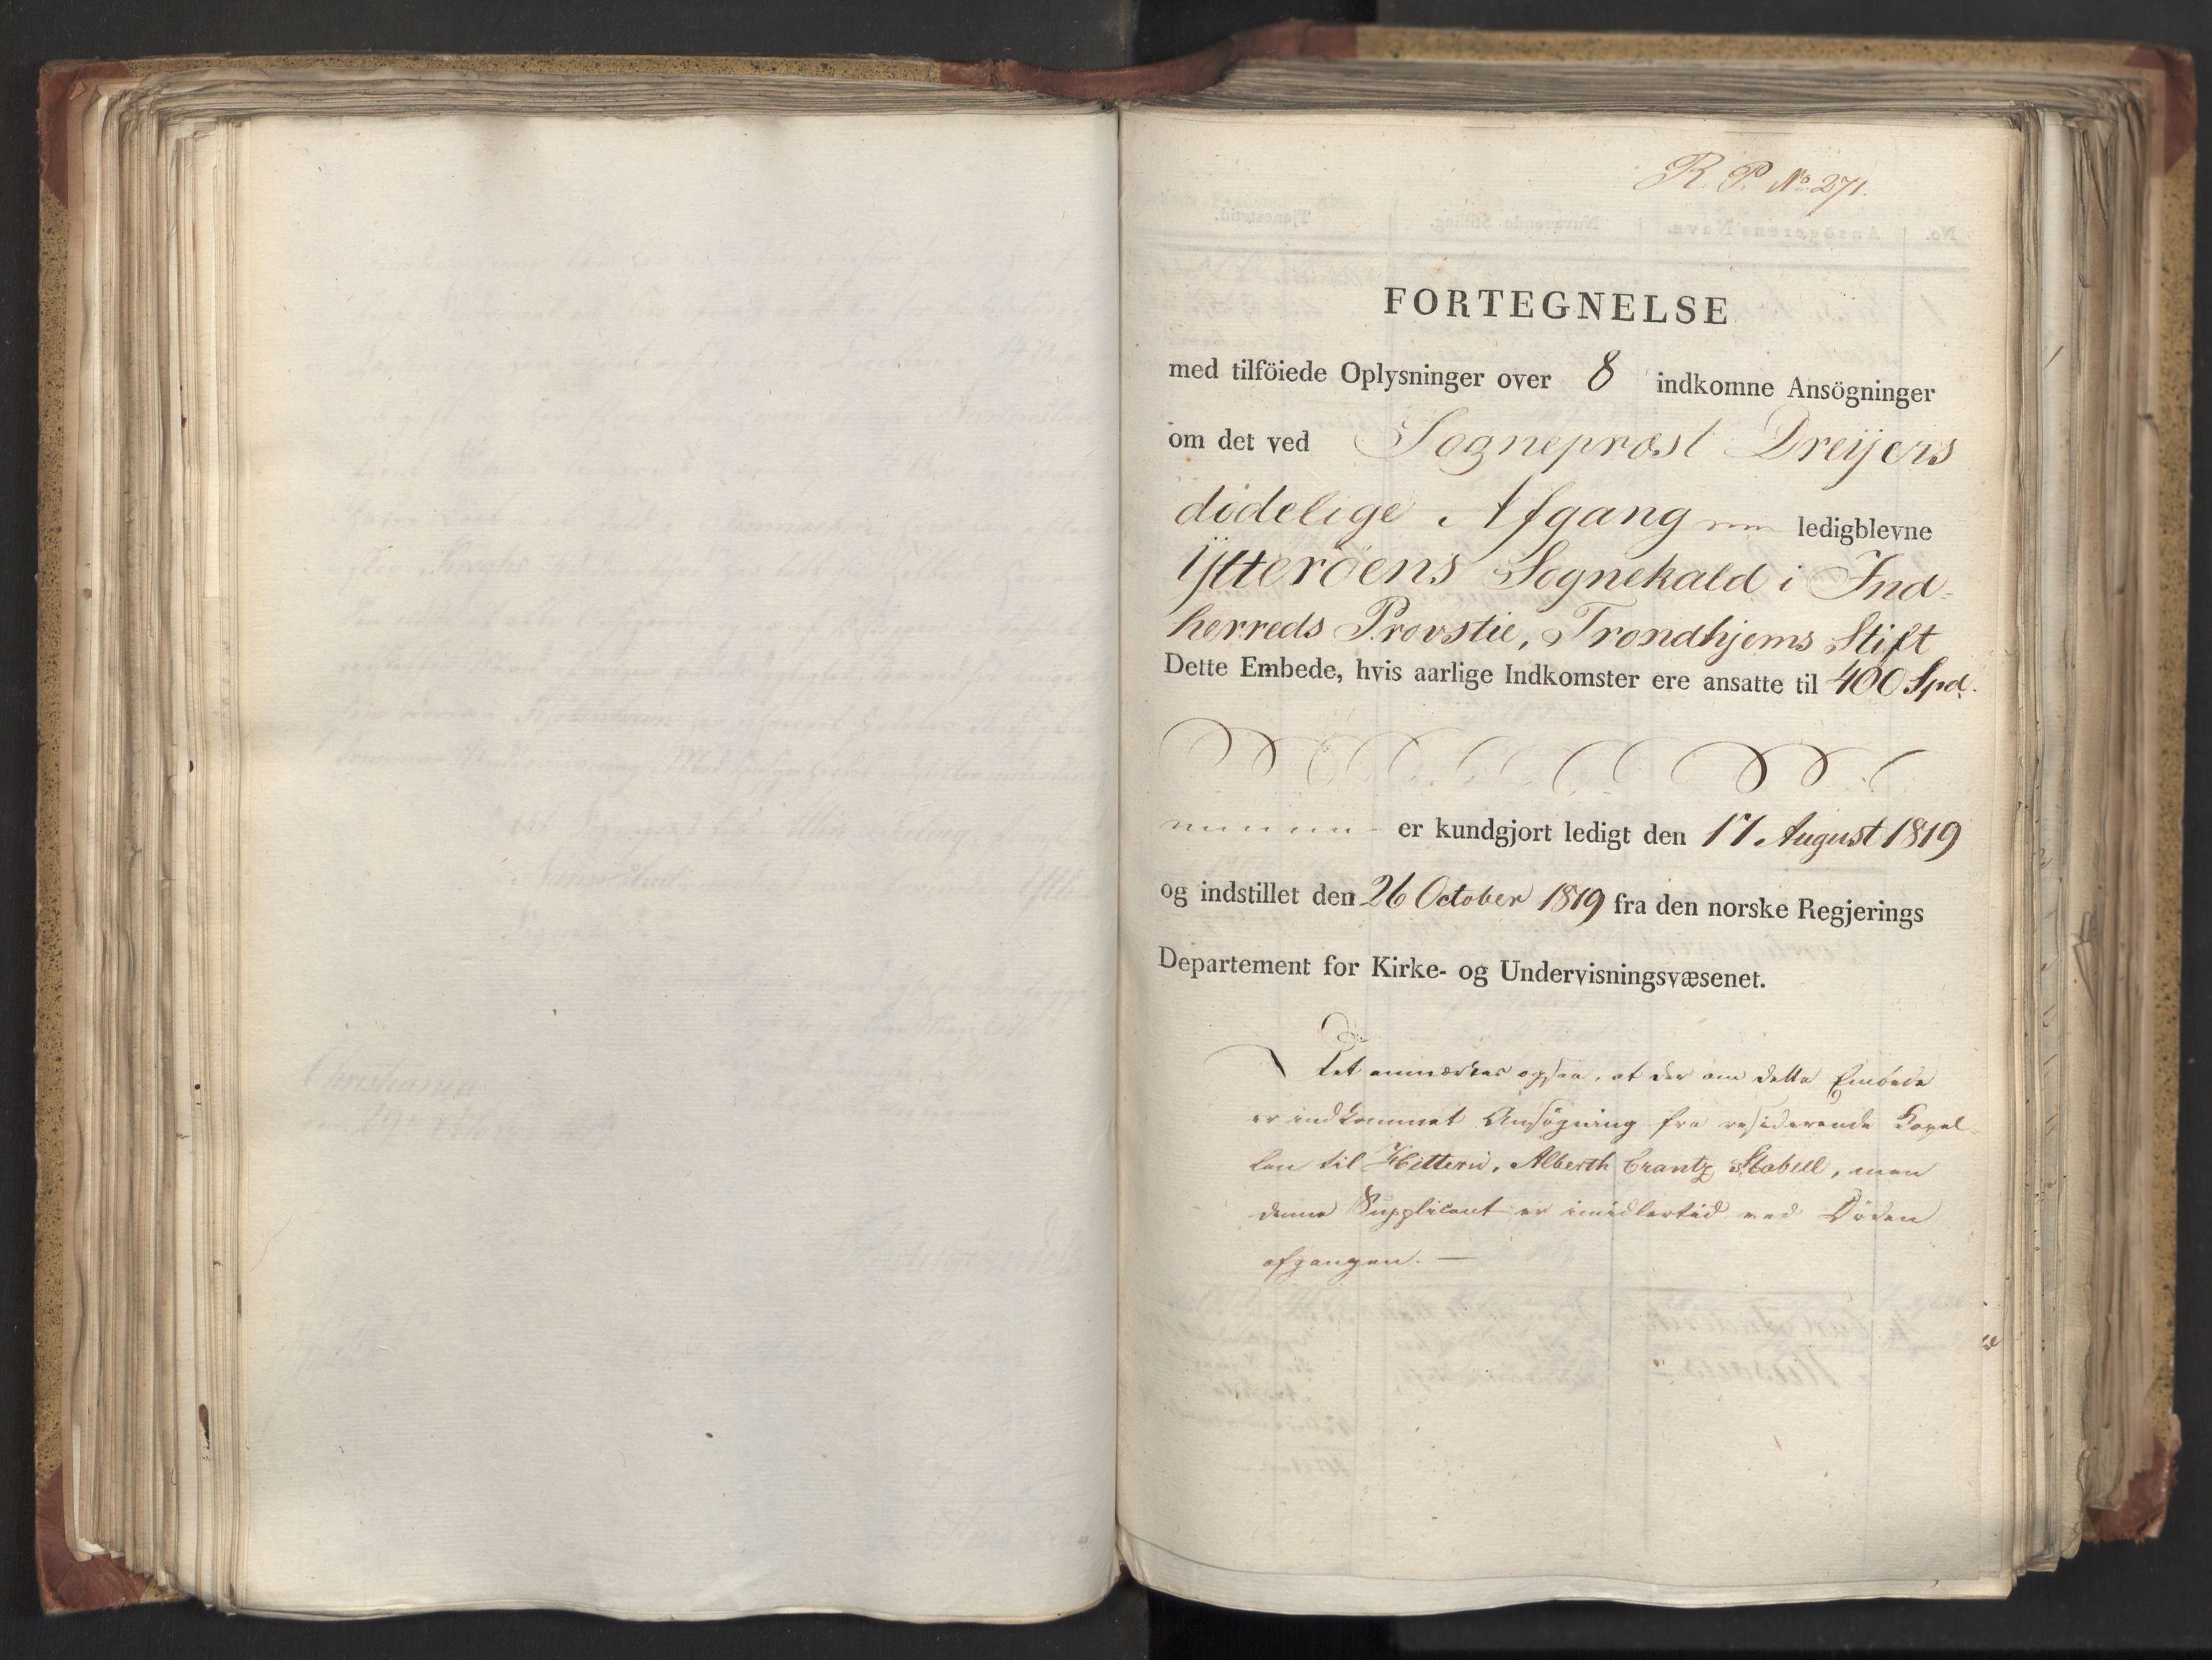 R. P. No. 271.
FORTEGNELSE
med tilföiede Oplysninger over 8 indkomne Ansögninger
om det ved Sognepræst Dreÿers
dödelige Afgang ledigblevne
Ÿtteröens Sognekald i Ind-
herreds Provstie, Trondhjems Stift
Dette Embede, hvis aarlige Indkomster ere ansatte til 400 Spd.
er kundgjort ledigt den 17 August 1819
og indstillet den 26 October 1819 fra den norske Regjerings
Departement for Kirke- og Undervisningsvæsenet.
Det anmærkes ogsaa, at der om dette Embede
er indkommet Ansögning fra residerende Capel-
lan til Hitterö, Alberth Crantz Stabell, men
denne Supplicant er imidlertid ved Döden
afgangen. —